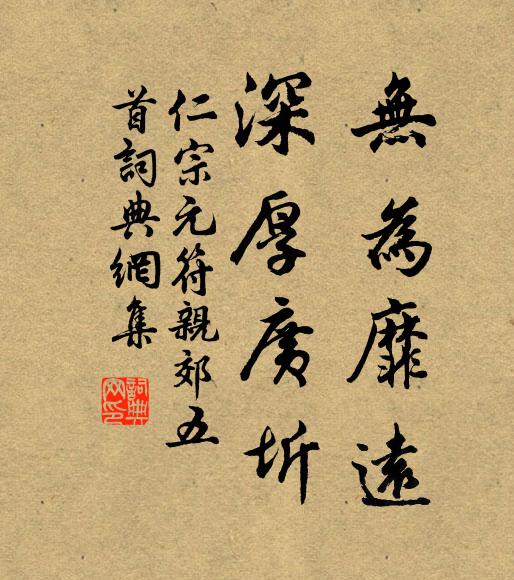 無為靡遠
深厚廣圻
仁宗元符親郊五
首詞典網集
詞典
网印